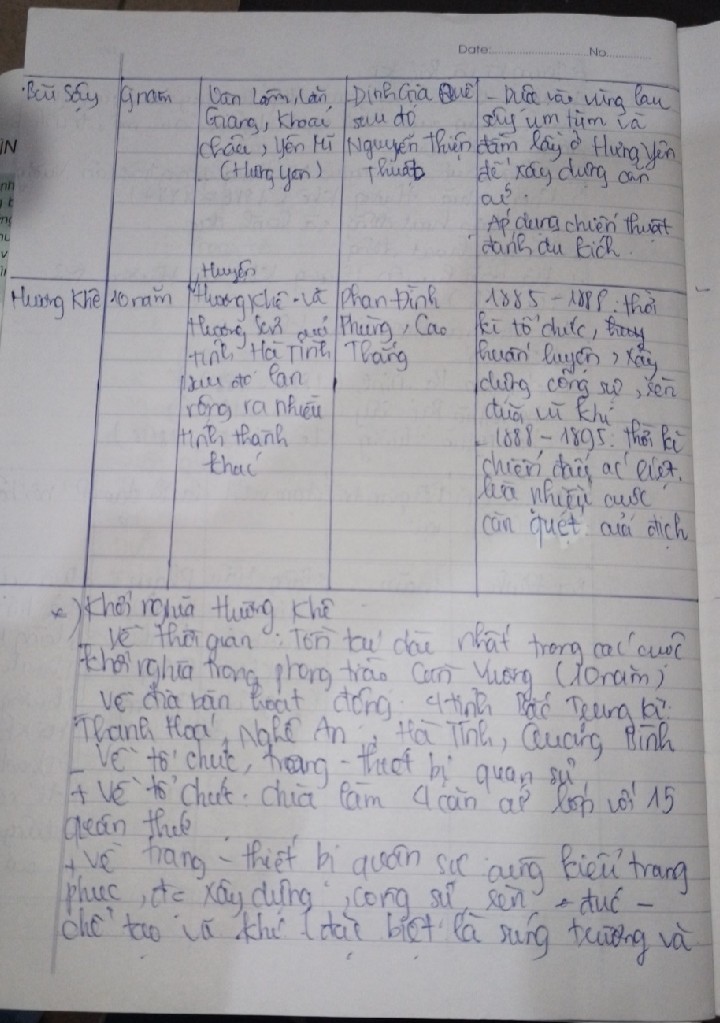 Date: No
Bãi Sậy
9 năm
Văn Lâm, Văn
Giang, Khoái
châu, Yên Mĩ
(Hưng Yên)
Đinh Gia Quế
sau đó
Nguyễn Thiện
Thuật
- Dựa vào vùng lau
sậy um tùm và
đầm lầy ở Hưng Yên
để xây dựng căn
cứ.
Áp dụng chiến thuật
đánh du kích.
Hương Khê
10 năm
Huyện
Hương Khê và
Hương Sơn
tỉnh Hà Tĩnh
sau đó lan
rộng ra nhiều
tỉnh thành
khác
Phan Đình
Phùng, Cao
Thắng
1885 - 1888: thời
kì tổ chức,
huấn luyện, xây
dựng công sự, rèn
đúc vũ khí
- 1888 - 1895: thời kì
chiến đấu ác liệt,
nhiều cuộc
càn quét của địch
*) Khởi nghĩa Hương Khê
Về thời gian: Tồn tại dài nhất trong các cuộc
khởi nghĩa trong phong trào Cần Vương (10 năm)
Về địa bàn hoạt động: 4 tỉnh Bắc Trung kì:
Thanh Hoá, Nghệ An, Hà Tĩnh, Quảng Bình
- Về tổ chức, trang - thiết bị quân sự
+ Về tổ chức: chia làm 4 căn cứ lớn với 15
quân thứ
+ Về trang - thiết bị quân sự: cùng kiểu trang
phục, đc xây dựng, công sự, rèn - đúc -
chế tạo vũ khí (đặc biệt là súng trường và